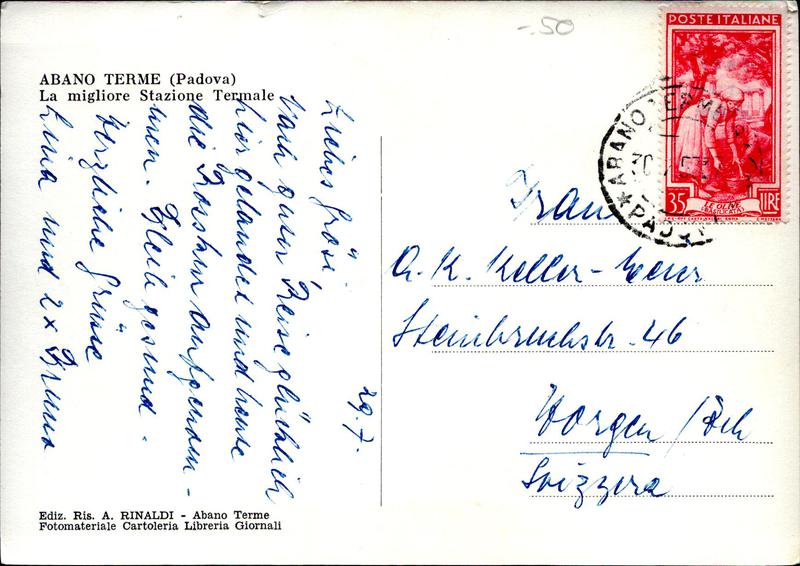 -.50
POSTE ITALIANE
35 LIRE
LE OLIVE
ABANO TERME
PADOVA
ABANO TERME (Padova)
La migliore Stazione Termale
29.7.
Liebes Grösi,
Nach guter Reise glücklich
hier gelandet und heute
die Kur
aufgenom-
men. Bleib gesund.
Herzliche Grüsse
Lina und 2x Bruno
Frau
A. K. Keller-
Steinbruchstr. 46
Horgen / Zch
Svizzera
Ediz. Ris. A. RINALDI - Abano Terme
Fotomateriale Cartoleria Libreria Giornali